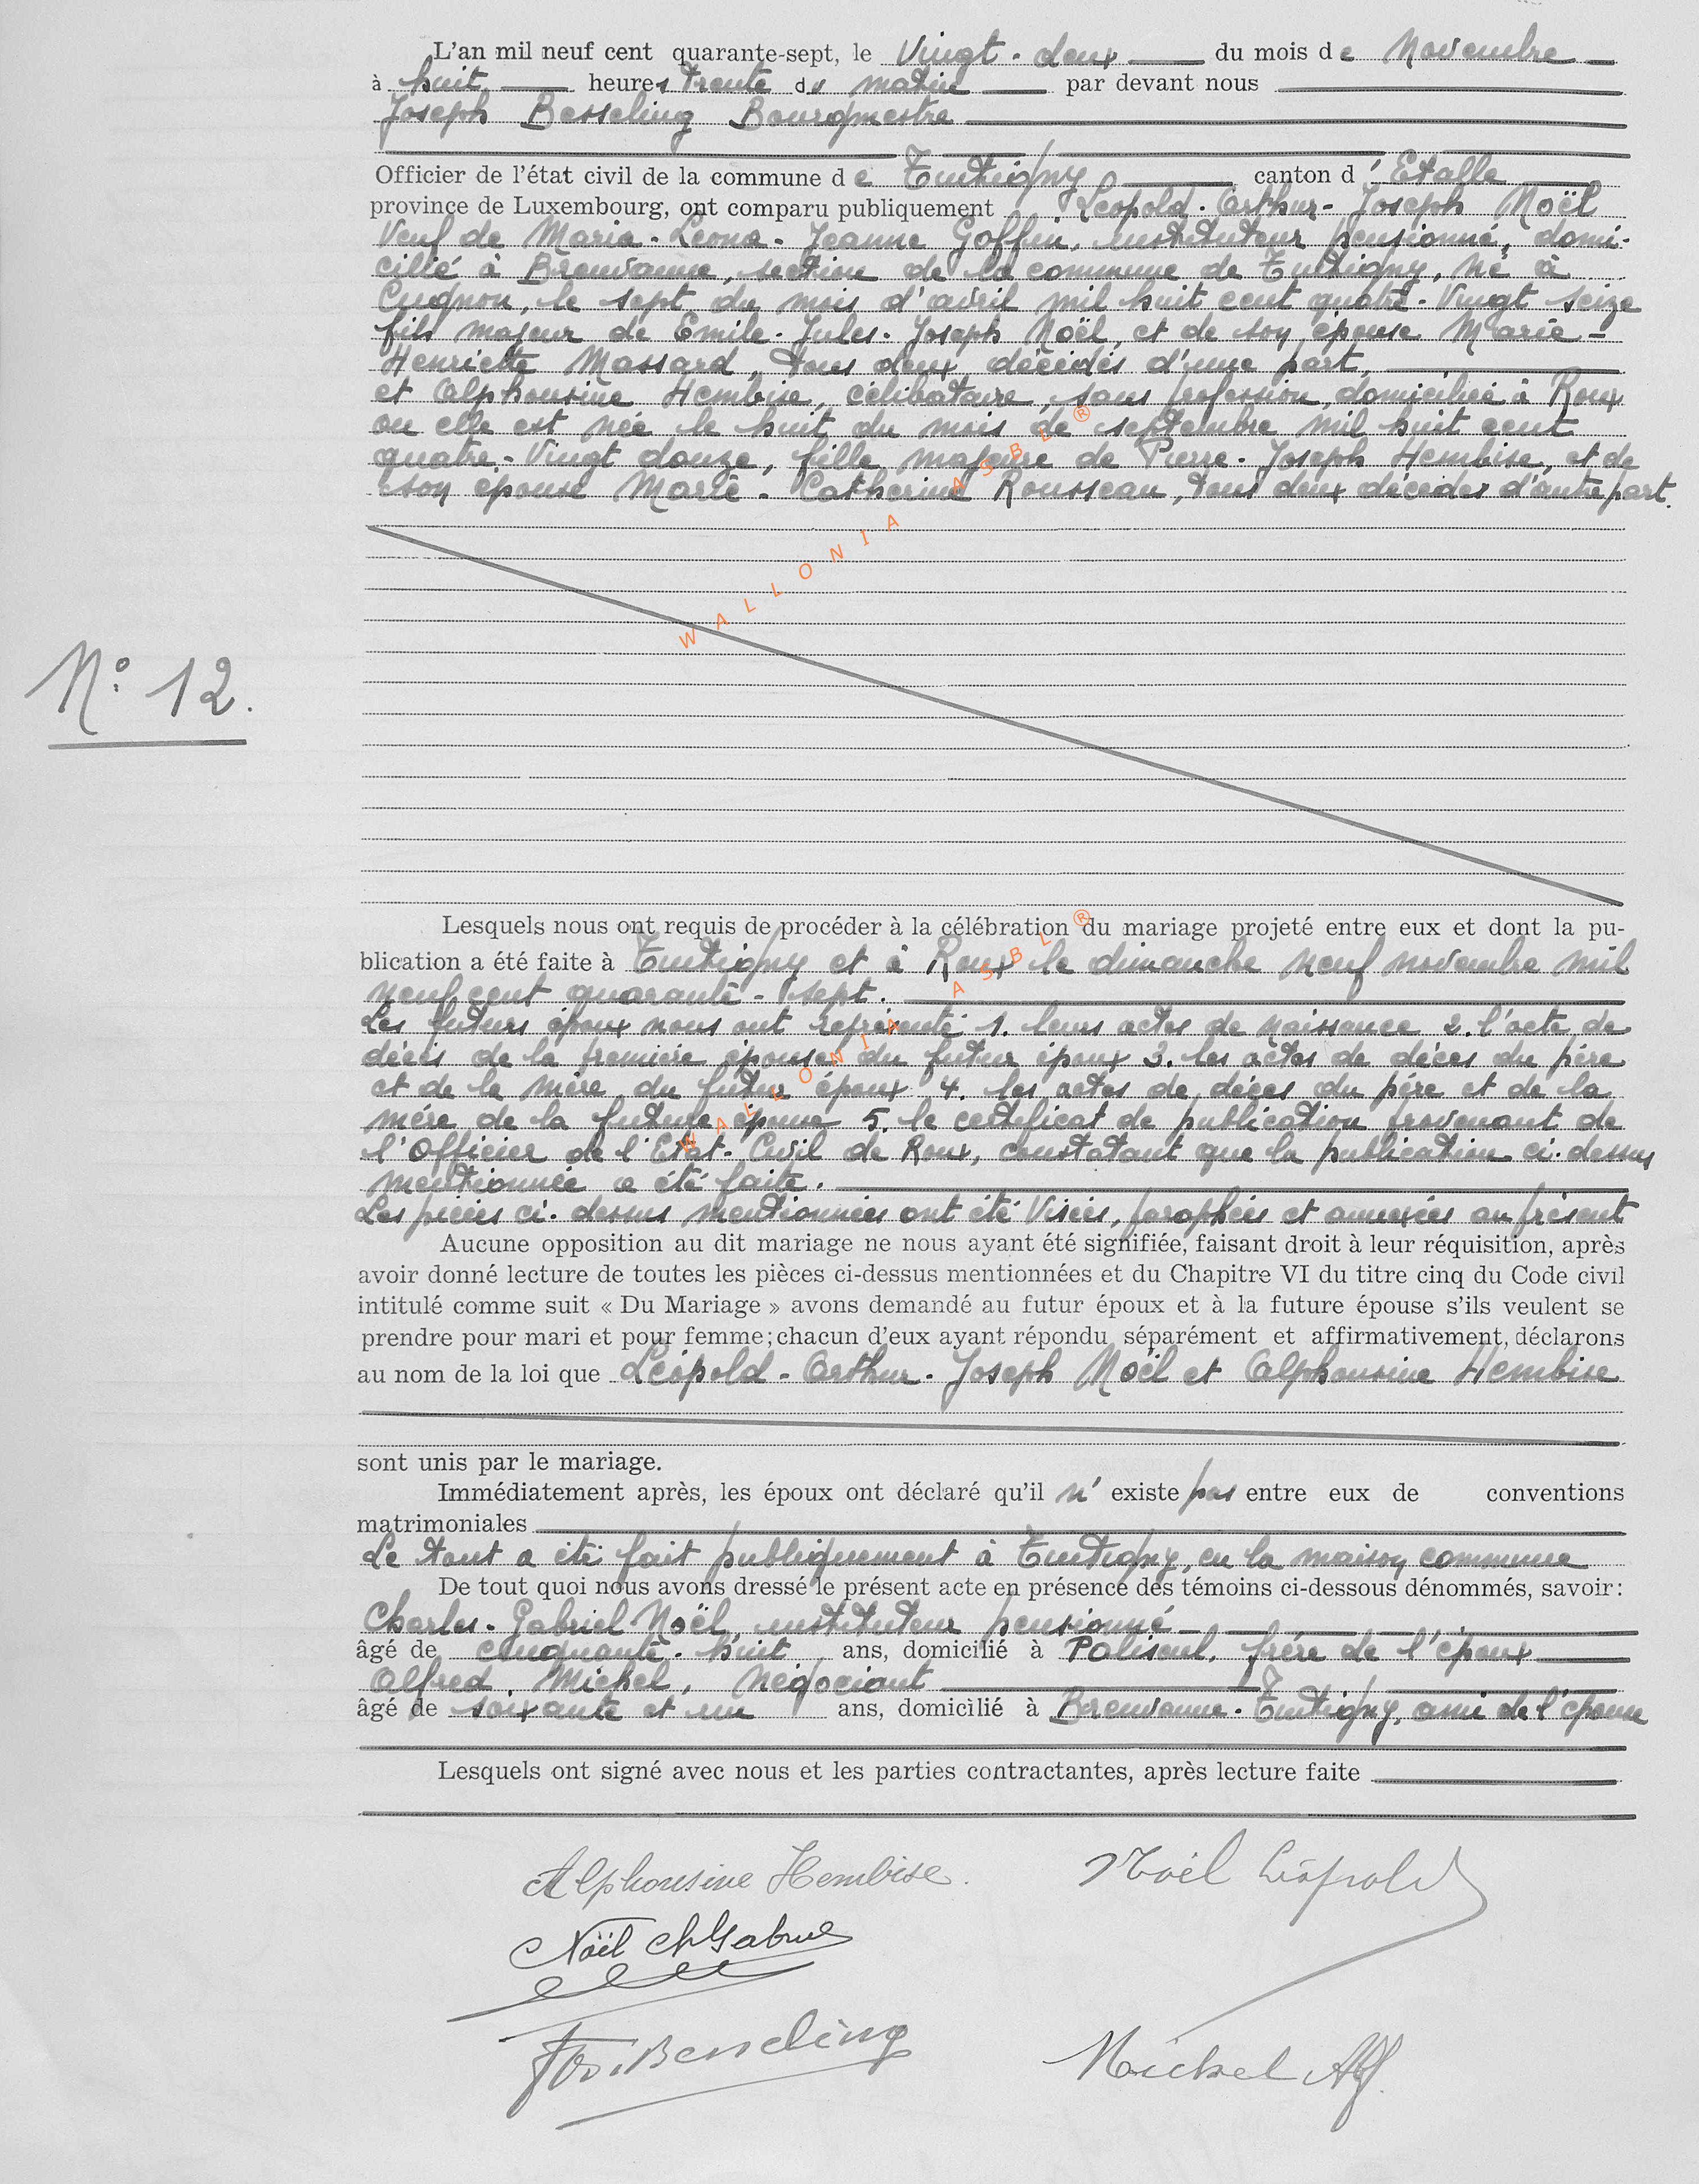 L'an mil neuf cent quarante-sept, le Vingt-deux du mois de Novembre
à huit heures trente du matin par devant nous
Joseph Besseling Bourgmestre
Officier de l'état civil de la commune de Tintigny canton d'Etalle
province de Luxembourg, ont comparu publiquement Léopold-Arthur-Joseph Noël
Veuf de Maria-Léona-Jeanne Goffin, instituteur pensionné, domi-
cilié à Breuvanne, section de la commune de Tintigny, né à
Cugnon, le sept du mois d'avril mil huit cent quatre-Vingt seize
fils majeur de Emile-Jules-Joseph Noël, et de son épouse Marie-
Henriette Massard, tous deux décédés d'une part,
et Alphonsine Hembise, célibataire, sans profession, domiciliée à Roux
ou elle est née le huit du mois de septembre mil huit cent
quatre-Vingt douze, fille majeure de Pierre-Joseph Hembise, et de
son épouse Marie-Catherine Rousseau, tous deux décédés d'autre part.
WALLONIA ASBL ®
N° 12.
Lesquels nous ont requis de procéder à la célébration du mariage projeté entre eux et dont la pu-
blication a été faite à Tintigny et à Roux le dimanche neuf novembre mil
neuf cent quarante-sept.
Les futurs époux nous ont représenté 1. leurs actes de naissance 2. l'acte de
décès de la première épouse du futur époux 3. les actes de décès du père
et de la mère du futur époux 4. les actes de décès du père et de la
mère de la future épouse 5. le certificat de publication provenant de
l'Officier de l'Etat-Civil de Roux, constatant que la publication ci-dessus
mentionnée a été faite.
Les pièces ci-dessus mentionnées ont été Visées, paraphées et annexées au présent
WALLONIA ASBL ®
Aucune opposition au dit mariage ne nous ayant été signifiée, faisant droit à leur réquisition, après
avoir donné lecture de toutes les pièces ci-dessus mentionnées et du Chapitre VI du titre cinq du Code civil
intitulé comme suit « Du Mariage » avons demandé au futur époux et à la future épouse s'ils veulent se
prendre pour mari et pour femme; chacun d'eux ayant répondu séparément et affirmativement, déclarons
au nom de la loi que Léopold-Arthur-Joseph Noël et Alphonsine Hembise
sont unis par le mariage.
Immédiatement après, les époux ont déclaré qu'il n'existe pas entre eux de conventions
matrimoniales
Le tout a été fait publiquement à Tintigny, en la maison commune
De tout quoi nous avons dressé le présent acte en présence des témoins ci-dessous dénommés, savoir:
Charles-Gabriel Noël, instituteur pensionné
âgé de cinquante-huit ans, domicilié à Paliseul, frère de l'époux
Alfred Michel, négociant
âgé de soixante et un ans, domicilié à Breuvanne-Tintigny, ami de l'épouse
Lesquels ont signé avec nous et les parties contractantes, après lecture faite
Alphonsine Hembise. Noël Léopold
Noël Ch Gabriel
Jos. Besseling Michel Alf.